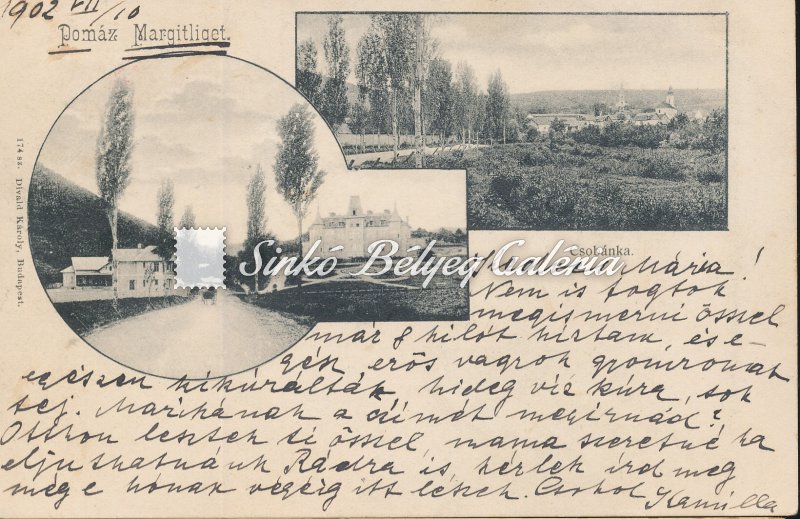 1902 VII/10
Pomáz Margitliget.
174 sz. Divald Károly, Budapest.
Csobánka.
Sinkó Bélyeg Galéria
Mária!
Nem is fogtok
megismerni őssel
már 8 kilót híztam, és e-
gész erős vagyok gyomromat
egészen kikúrálták, hideg víz kúra, sok
tej. Marikának a címét megírnád?
Otthon lesztek ti őssel, mama szeretné ha
eljuthatnánk Rádra is, kérlek írd meg
még e hónak végéig itt leszek. Csókol
Kamilla